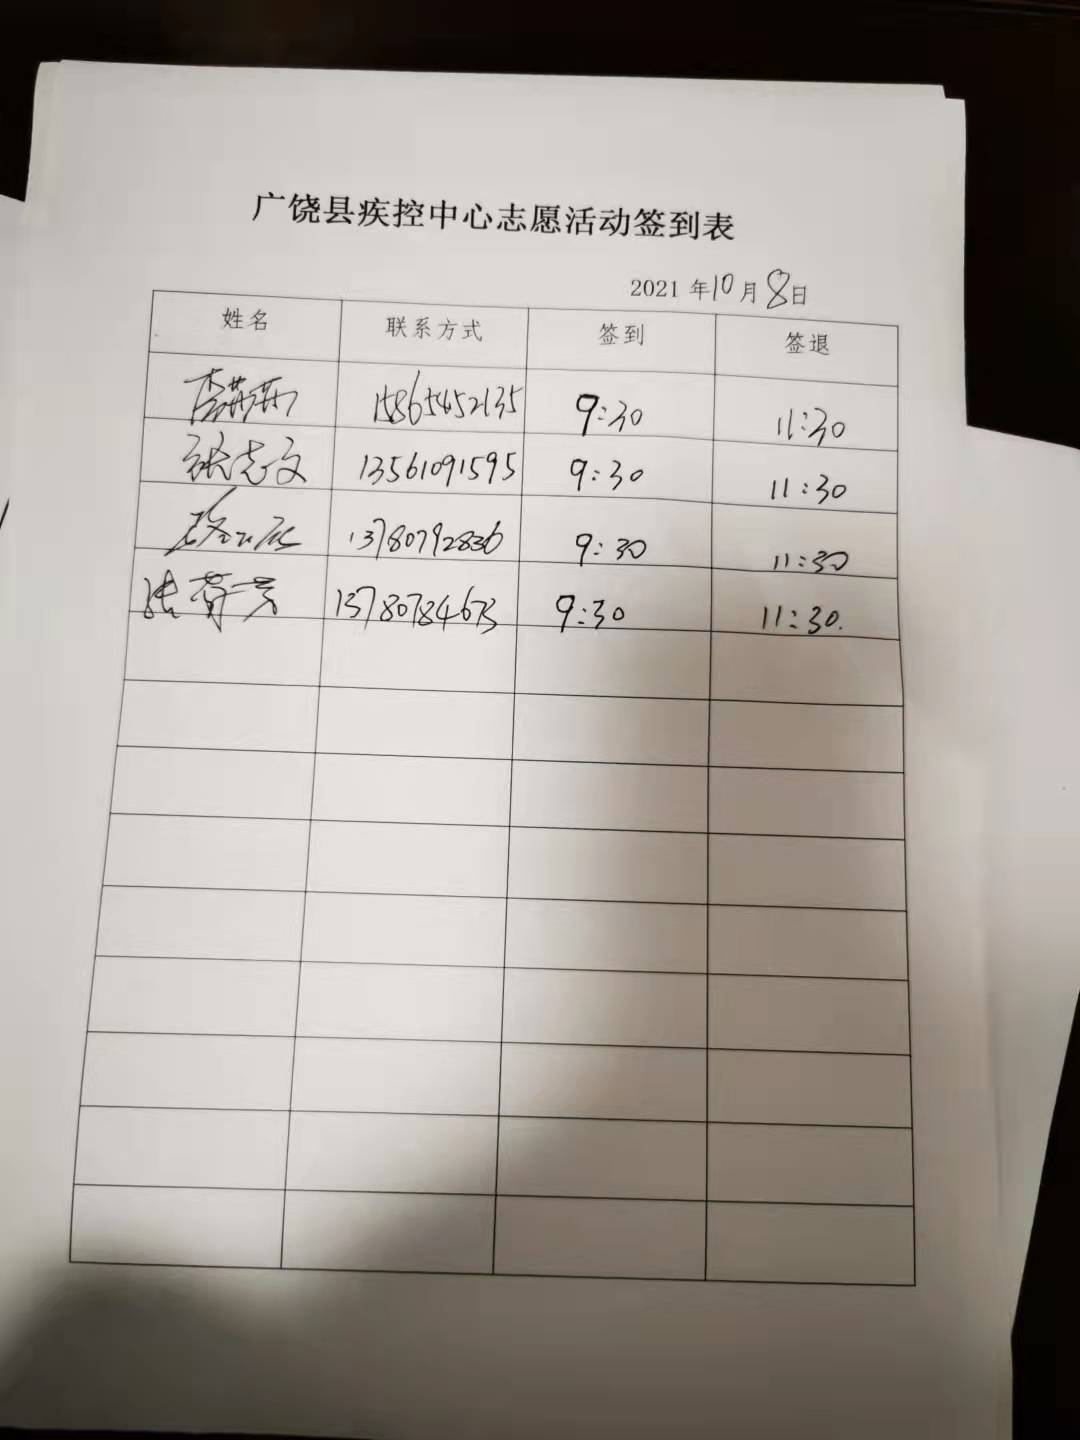 广饶县疾控中心志愿活动签到表
2021 年10月8日
姓名 联系方式 签到 签退
李莉莉 15865452135 9:30 11:30
张志文 13561091595 9:30 11:30
13780792836 9:30 11:30
张 13780784673 9:30 11:30.